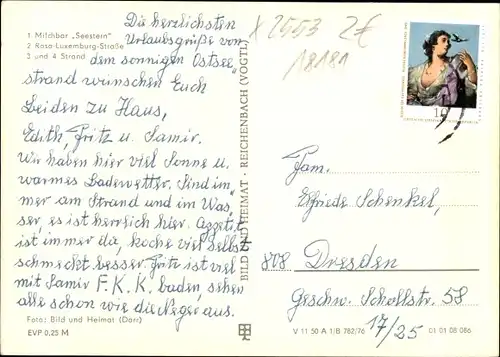 1 Milchbar „Seestern“
2 Rosa-Luxemburg-Straße
3 und 4 Strand
Die herzlichsten
Urlaubsgrüße vom
dem sonnigen Ostsee
strand wünschen Euch
beiden zu Haus,
Edith, Fritz u. Samir.
Wir haben hier viel Sonne u.
warmes Badewetter. Sind im
mer am Strand und im Was
ser, es ist herrlich hier. Appetit
ist immer da, koche viel selbst
schmeckt besser. Fritz ist viel
mit Samir F.K.K. baden, sehen
alle schon wie die Neger aus.
Foto: Bild und Heimat (Darr)
EVP 0,25 M
BILD UND HEIMAT · REICHENBACH (VOGTL)
X 2553 2€
18181
10
Fam.
Elfriede Schenkel,
808 Dresden
Geschw. Schollstr. 58
17/25
V 11 50 A 1/B 782/76
01 01 08 086